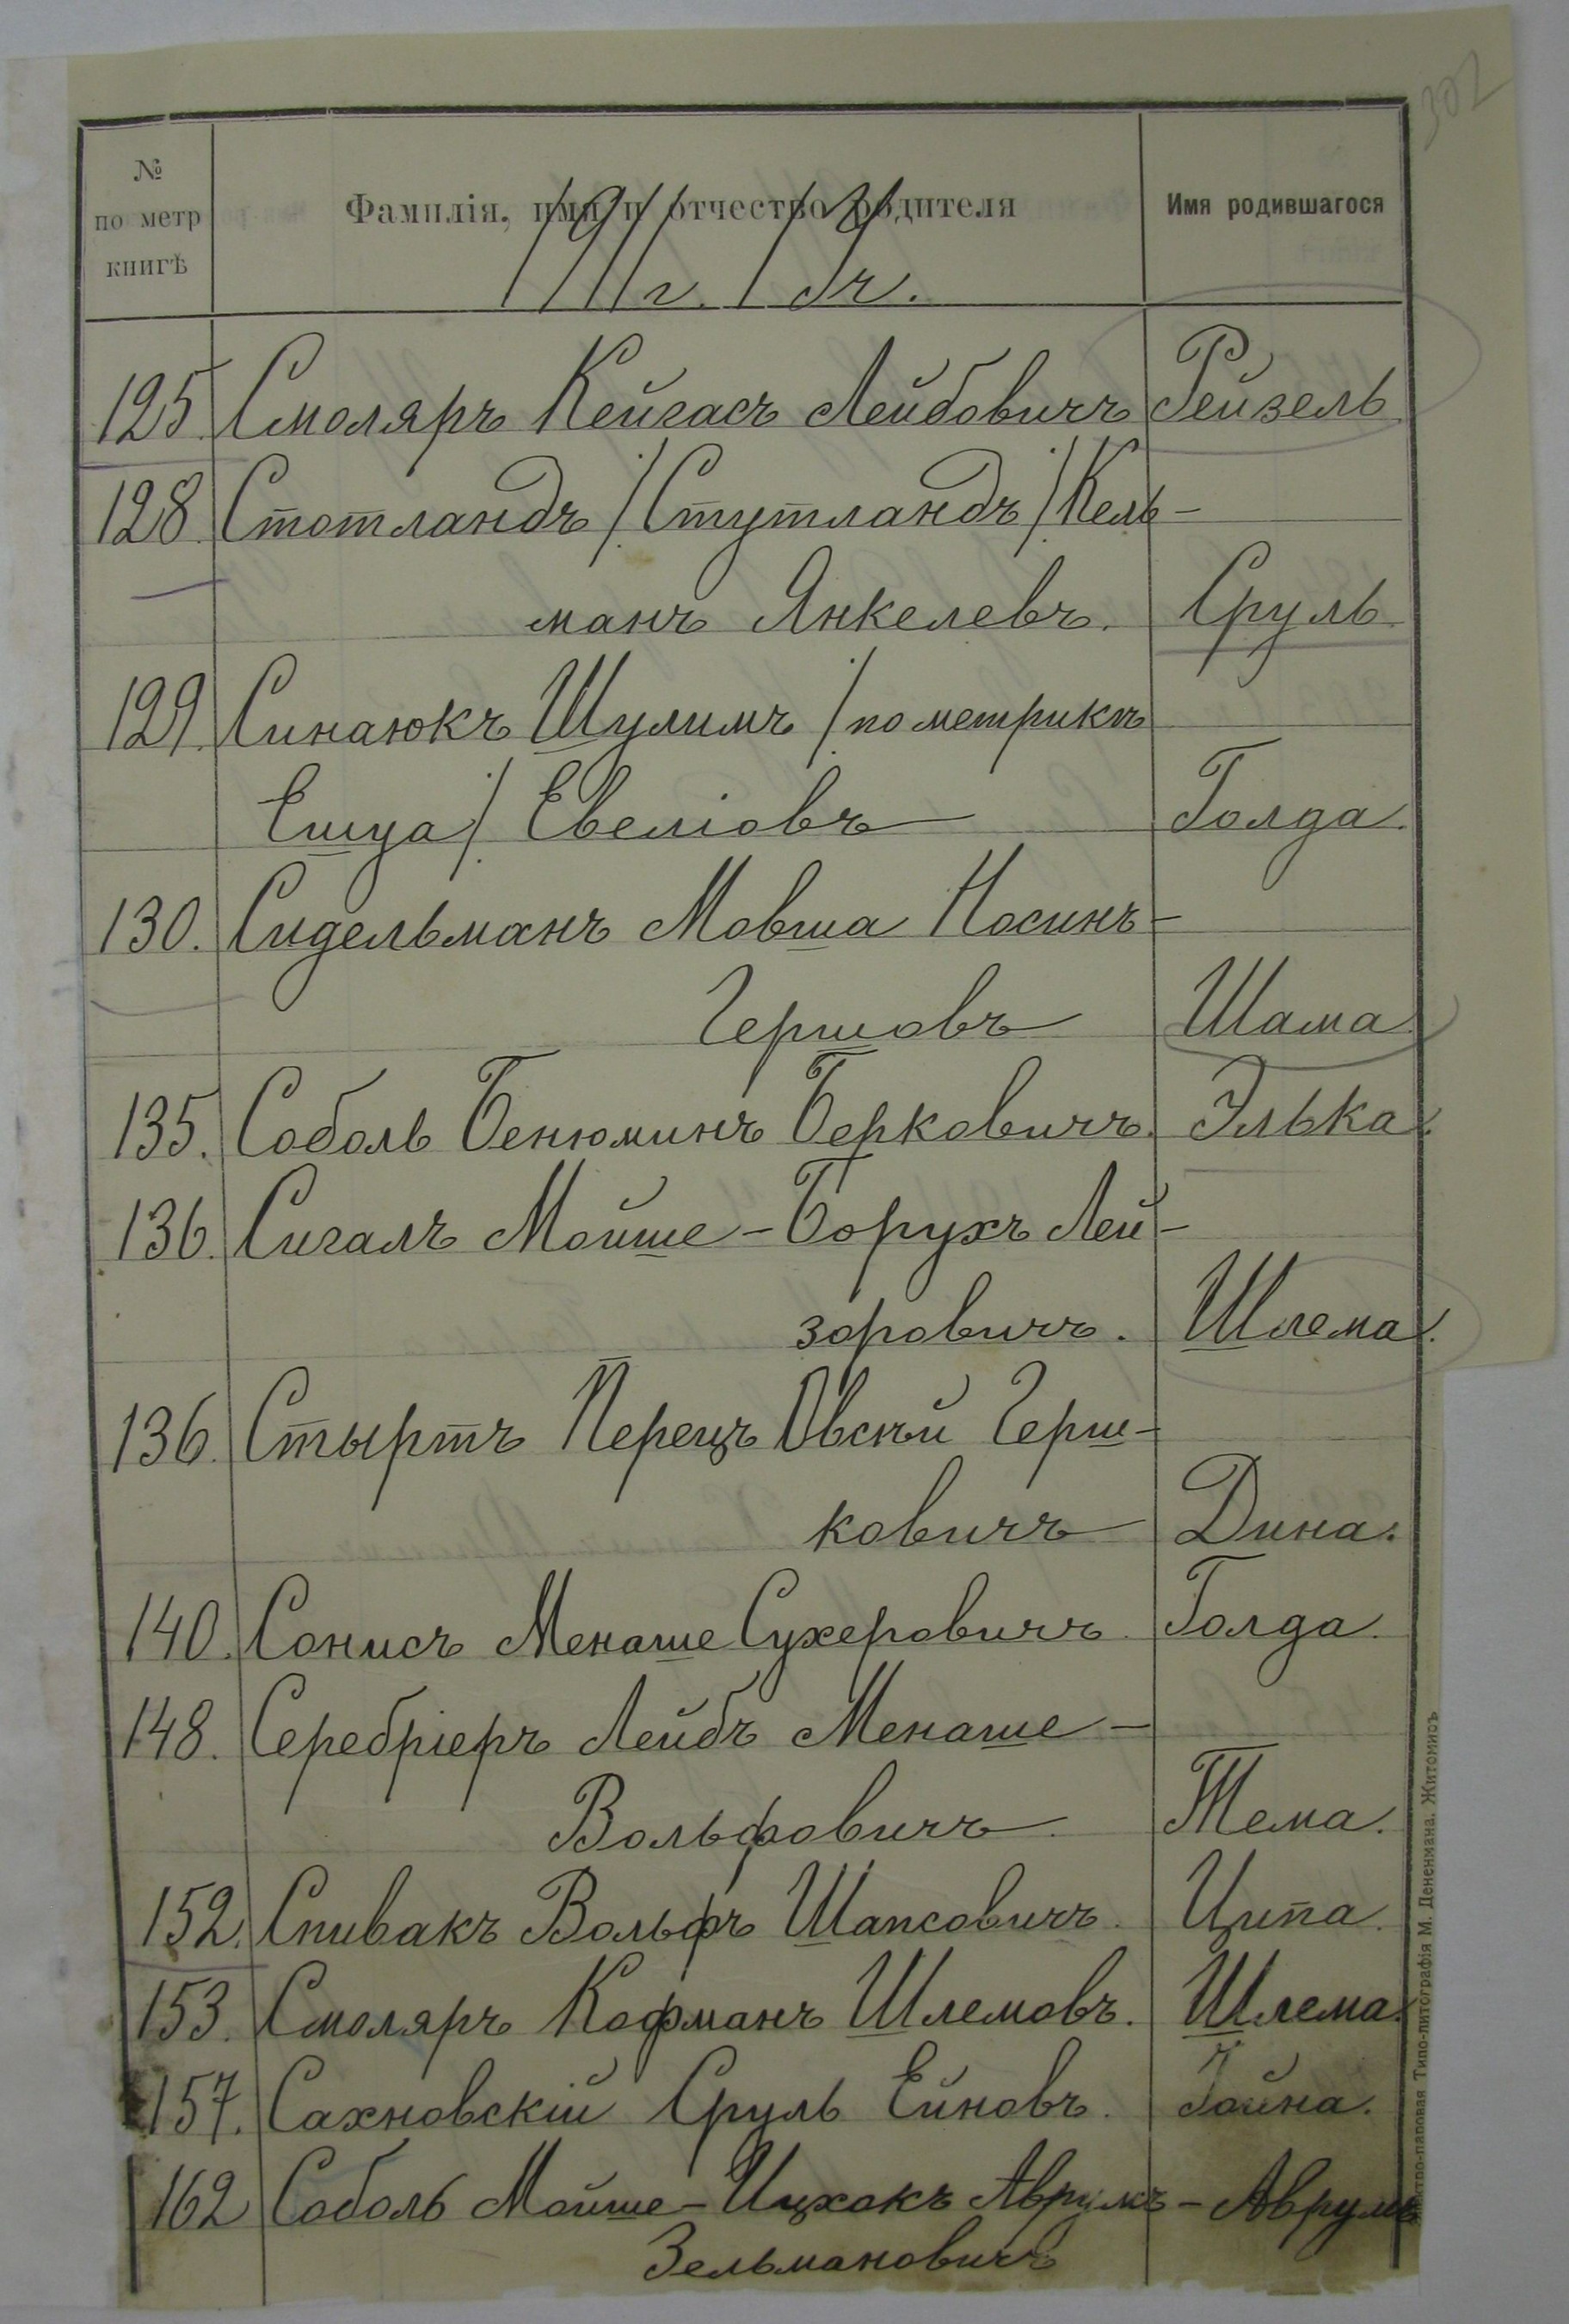 302
№ по метр книгѣ
Фамилія, имя и отчество родителя
Имя родившагося
1911 г.
125. Смоляръ Кейгасъ Лейбовичъ Рейзель
128. Стотландъ /Стутландъ/ Кель-
манъ Янкелевъ. Сруль
129. Синаюкъ Шулимъ /по метрикѣ
Ешуа/ Евеліовъ Голда.
130. Сидельманъ Мовша Носинъ-
Гершовъ Шама
135. Соболь Бенюминъ Берковичъ. Элька.
136. Сигалъ Мойше-Борухъ Лей-
зоровичъ. Шлема.
136. Стыртъ Перецъ Овсѣй Герш-
ковичъ Дина.
140. Сонисъ Менаше Сухеровичъ. Голда.
148. Серебріеръ Лейбъ Менаше-
Вольфовичъ. Тема.
152. Спивакъ Вольфъ Шапсовичъ. Ципа.
153. Смоляръ Кофманъ Шлемовъ. Шлема.
157. Сахновскій Сруль Ейновъ. Гойна.
162 Соболь Мойше-Ицхокъ Аврумъ- Аврумъ
Зельмановичъ
паровая Типо-литографія М. Дененмана. Житомиръ